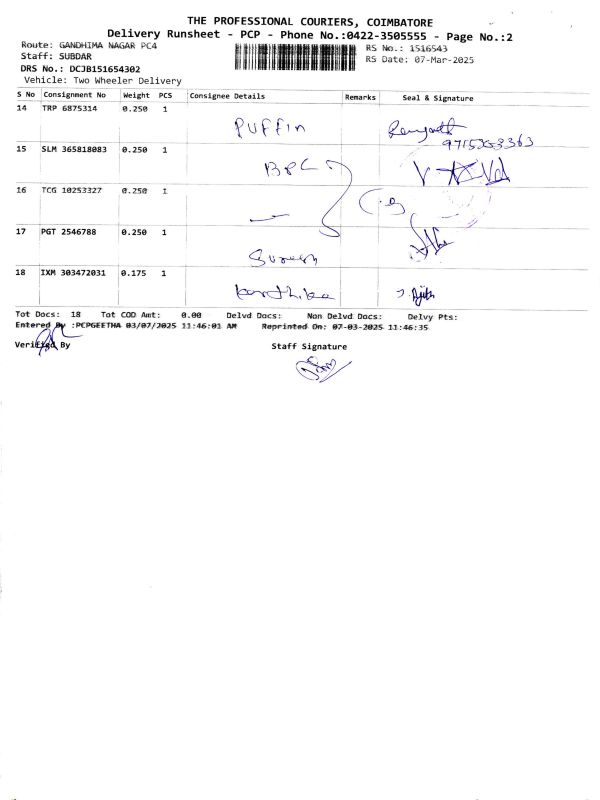 THE PROFESSIONAL COURIERS, COIMBATORE
Delivery Runsheet - PCP - Phone No.:0422-3505555 - Page No.:2
Route: GANDHIMA NAGAR PC4
RS No.: 1516543
Staff: SUBDAR
RS Date: 07-Mar-2025
DRS No.: DCJB151654302
Vehicle: Two Wheeler Delivery
S No Consignment No Weight PCS Consignee Details Remarks Seal & Signature
14 TRP 6875314 0.250 1 PUFFin
15 SLM 365818083 0.250 1 BPC
16 TCG 10253327 0.250 1
17 PGT 2546788 0.250 1 Suresh
18 IXM 303472031 0.175 1 Karthika
Tot Docs: 18 Tot COD Amt: 0.00 Delvd Docs: Non Delvd Docs: Delvy Pts:
Entered By :PCPGEETHA 03/07/2025 11:46:01 AM Reprinted On: 07-03-2025 11:46:35
Verified By Staff Signature